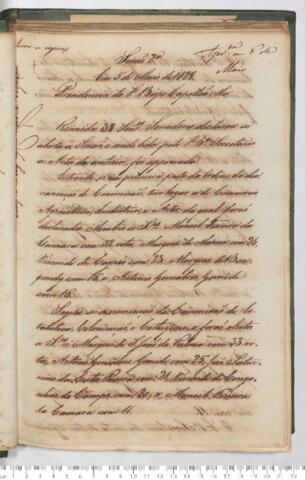 Sessão 2ª
Em 5 de Maio de 1828.
Presidencia do Sr Bispo Capellão Mór
Reunidos 38 Snrs Senadores declarou-se
aberta a Sessão e sendo lida pelo 1º Secretario
a Acta da anterior foi approvada.
Entrando na primeira parte da Ordem do dia
nomeação de Commissões, teve lugar a de Commercio
Agricultura, Industria, e Artes da qual forão
declarados Membros os Srs Manoel Ferreira da
Camara com 33 votos Marquez de Maricá com 26,
Visconde de Cayrú com 23 Marquez de Bae-
pendy com 18 e Antonio Gonsalves Gomide
com 18.
Seguio-se a nomeação da Commissão de Es-
tatistica, Colonisação, e Cathequese, e forão eleitos
os Srs Marquez de S. João da Palma com 33 vo-
tos, Antonio Gonsalves Gomide com 25, José Satur-
nino da Costa Pereira com 24, Visconde de Congo-
nhas do Campo com 20, e Manoel Ferreira
da Camara com 11.